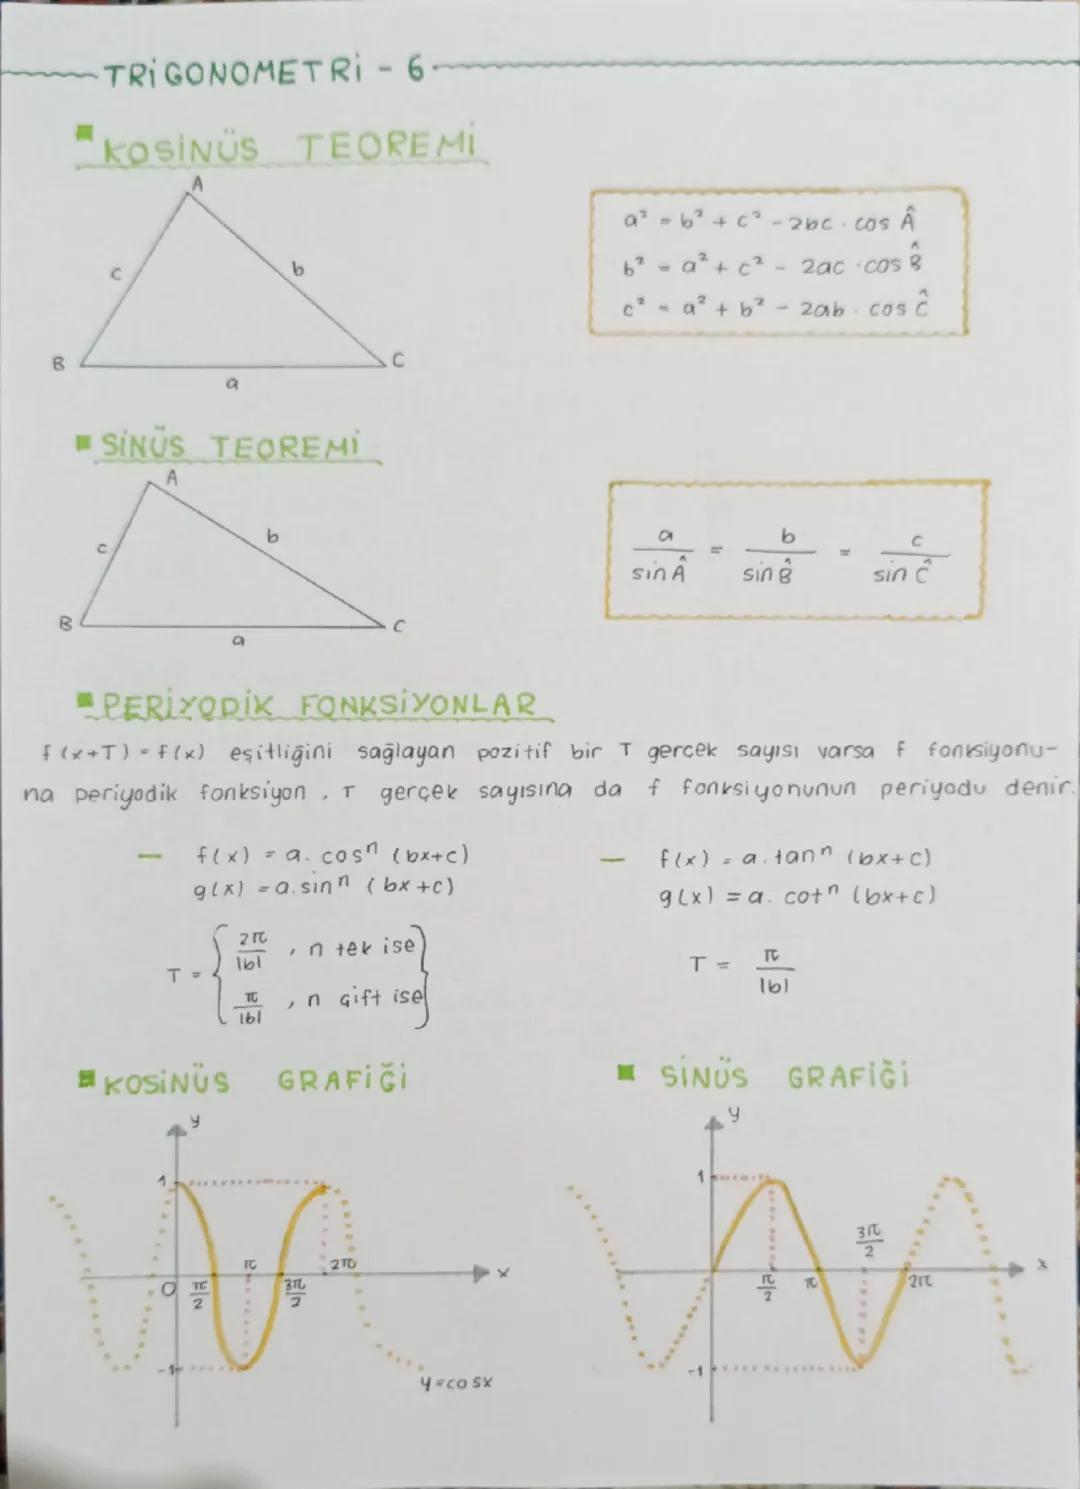 TRİGONOMETRİ - 6
KOSİNÜS TEOREMİ
A
c
b
B
C
a
a² = b² + c² - 2bc . cos Â
b² = a² + c² - 2ac . cos B̂
c² = a² + b² - 2ab . cos Ĉ
SİNÜS TEOREMİ
A
c
b
B
C
a
a/sin Â = b/sin B̂ = c/sin Ĉ
PERİYODİK FONKSİYONLAR
f(x+T) = f(x) eşitliğini sağlayan pozitif bir T gerçek sayısı varsa f fonksiyonu-
na periyodik fonksiyon , T gerçek sayısına da f fonksiyonunun periyodu denir.
— f(x) = a. cosⁿ (bx+c)
g(x) = a. sinⁿ (bx+c)
T = { 2π/|b| , n tek ise
π/|b| , n çift ise }
— f(x) = a. tanⁿ (bx+c)
g(x) = a. cotⁿ (bx+c)
T = π/|b|
KOSİNÜS GRAFİĞİ
y
1
π
2π
x
0
π/2
3π/2
-1
y=cosx
SİNÜS GRAFİĞİ
y
1
3π/2
x
π/2
π
2π
-1